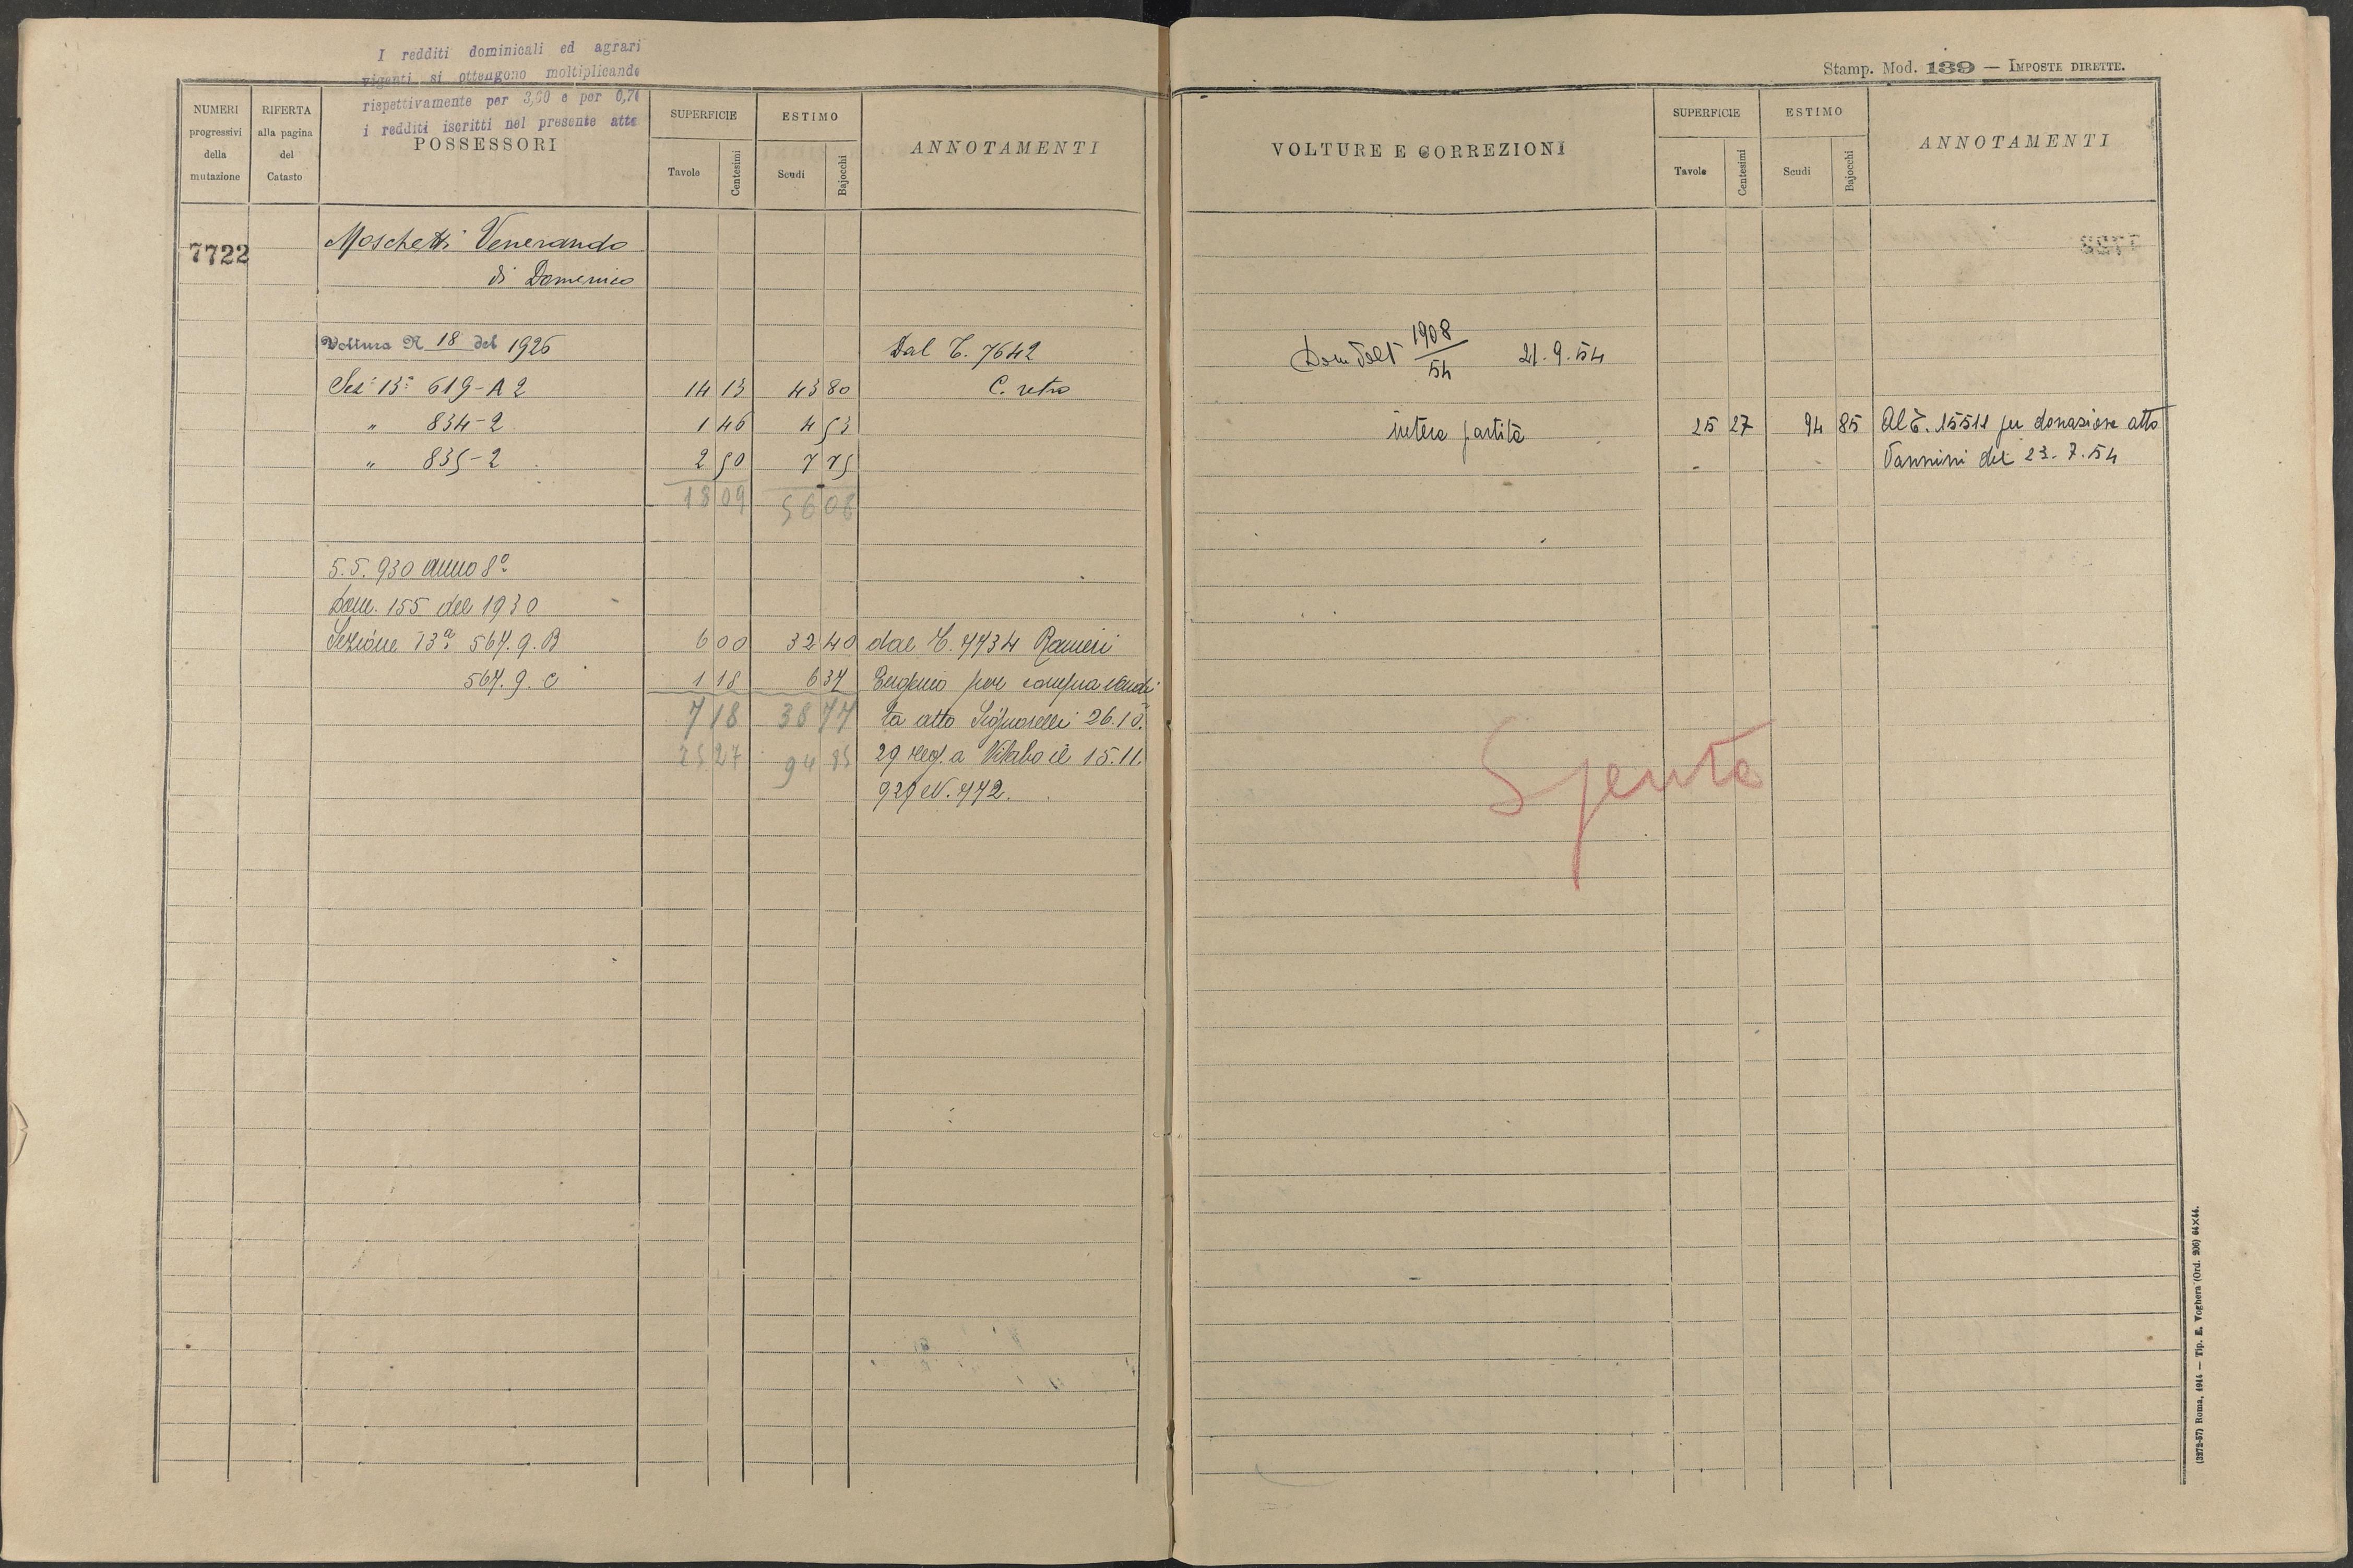 I redditi dominicali ed agrari
vigenti si ottengono moltiplicando
rispettivamente per 3,60 e per 0,74
i redditi iscritti nel presente atto
NUMERI progressivi della mutazione
RIFERTA alla pagina del Catasto
POSSESSORI
SUPERFICIE
Tavole Centesimi
ESTIMO
Scudi Bajocchi
ANNOTAMENTI
7722 Moschetti Venerando
di Domenico
Voltura N 18 del 1926 Dal T. 7642
Sez. 13ª 619-A 2 14 13 43 80 C. retro
" 834-2 1 46 4 53
" 835-2 2 50 7 75
18 09 56 08
5.5.930 anno 8º
Dom. 155 del 1930
Sezione 13ª 567.9.B 6 00 32 40 dal T. 7734 Ranieri
567.9.C 1 18 6 37 Eugenio per compra vendi
7 18 38 77 ta atto Signorelli 26.10.
25 27 94 85 29 reg. a Viterbo il 15.11.
929 N. 772.
Stamp. Mod. 139 — IMPOSTE DIRETTE.
VOLTURE E CORREZIONI
SUPERFICIE
Tavole Centesimi
ESTIMO
Scudi Bajocchi
ANNOTAMENTI
Dom Volt 1908/54 21.9.54
intera partita 25 27 94 85 Al T. 15511 per donazione atto
Vannini del 23.7.54
Spenta
(3272-57) Roma, 1914 — Tip. E. Voghera (Ord. 906) 64×44.